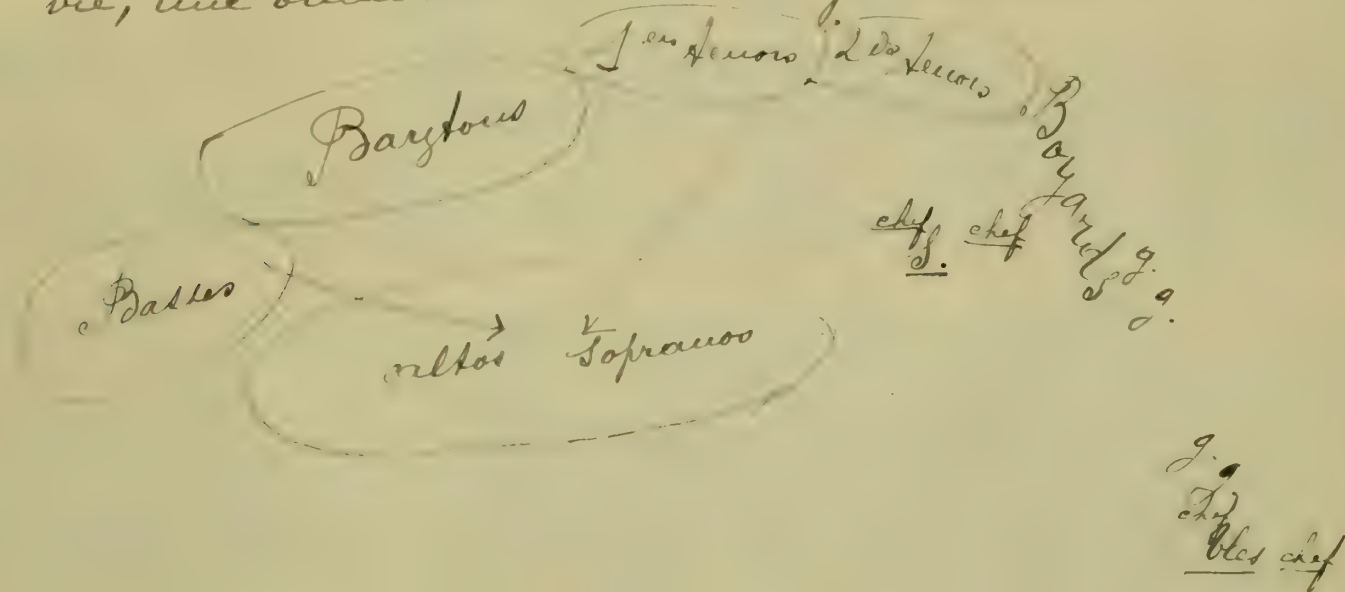 vie, une
1ers tenors 2ds tenors
Barytons
Boyards
chef chef
S.
g.
g.
Basses
altos Sopranos
g.
chef
bles chef